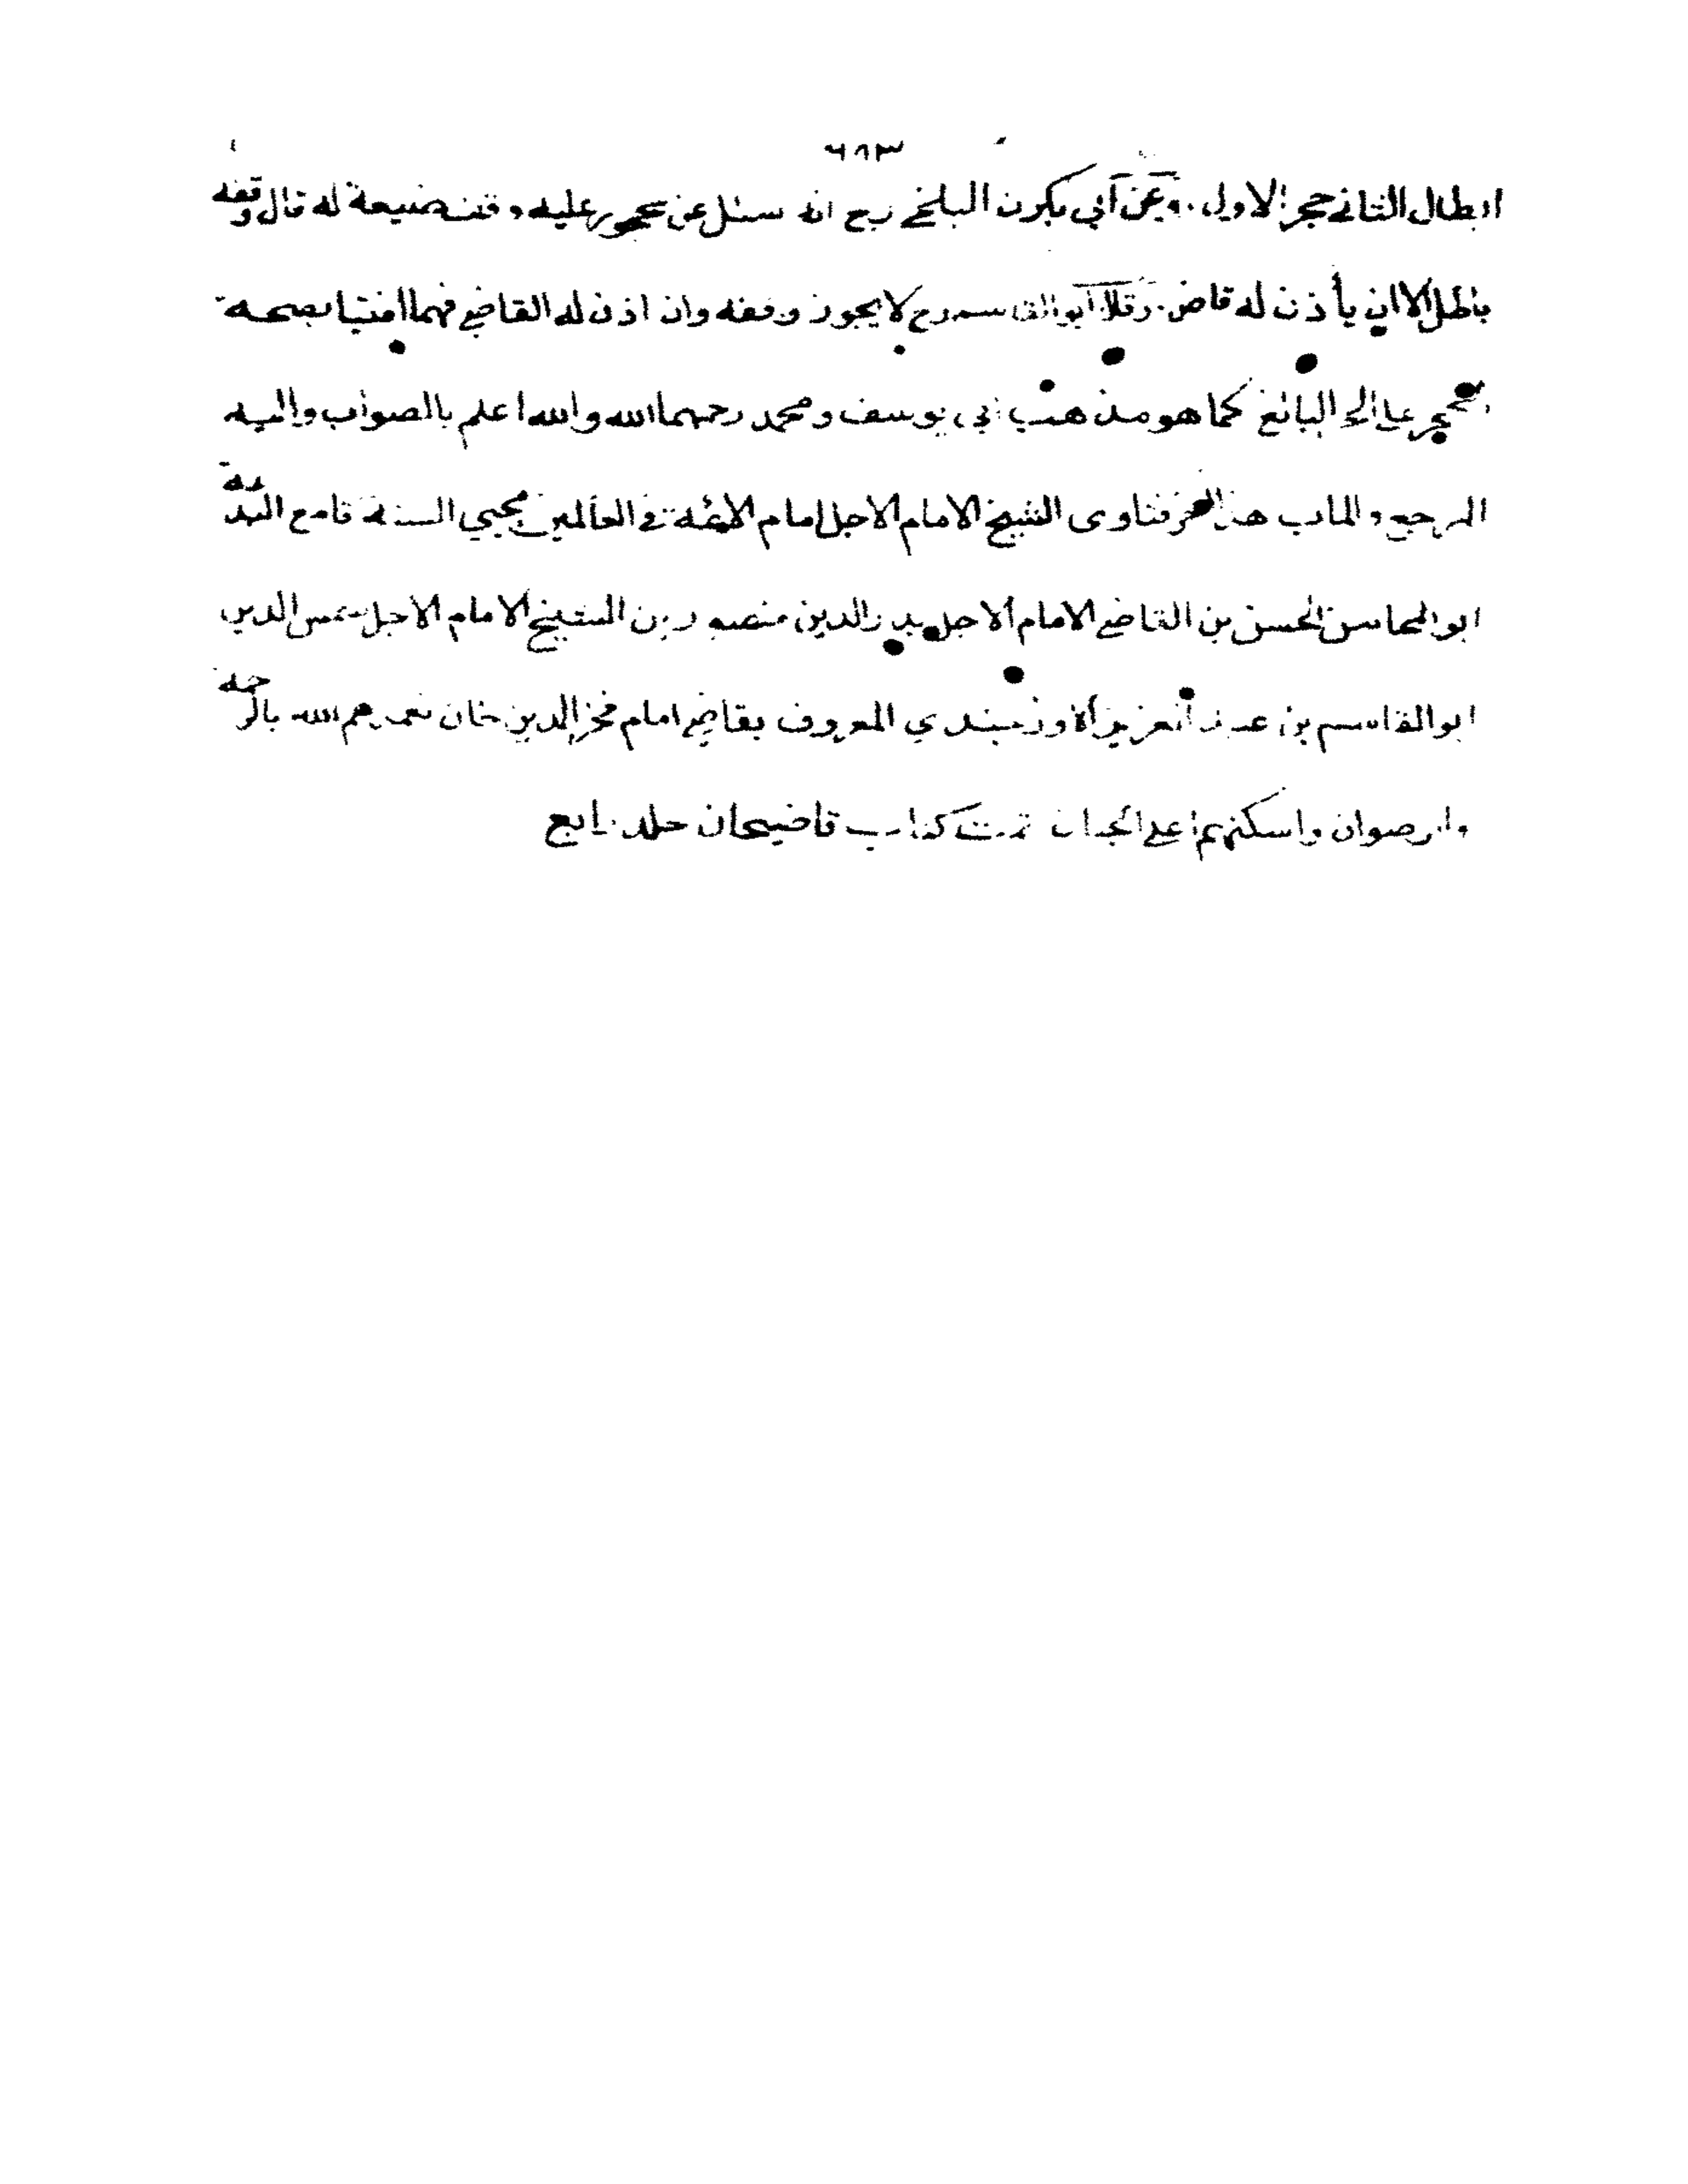 ٦٨٣
ابطال الثاني حجر الاول . وعن ابي بكرن البلخي رح انه سئل عن محجور عليه وقف ضيعة له قال وقفه
باطل الا ان يأذن له قاض . وقال ابو القاسم رح لا يجوز وقفه وان اذن له القاضي فهما افتيا بصحة
الحجر على الحر البالغ كما هو مذهب ابي يوسف ومحمد رحمهما الله والله اعلم بالصواب واليه
المرجع والماب هذا اخر فتاوى الشيخ الامام الاجل امام الائمة في العالمين محيي السنة قامع البدعة
ابو المحاسن الحسن بن القاضي الامام الاجل بدر الدين منصور بن الشيخ الامام الاجل شمس الدين
ابو القاسم بن عبد العزيز الاوزجندي المعروف بقاضي امام فخر الدين خان تغمدهم الله بالرحمة
والرضوان واسكنهم اعلى الجنان تمت كتاب قاضيخان جلد رابع